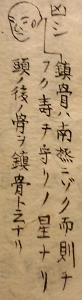 凶シ
鎮骨ハ南然ニゾク而則チ
フク寿ヲ守リノ星ナリ
頭ノ後ノ骨ヲ鎮骨ト云ナリ